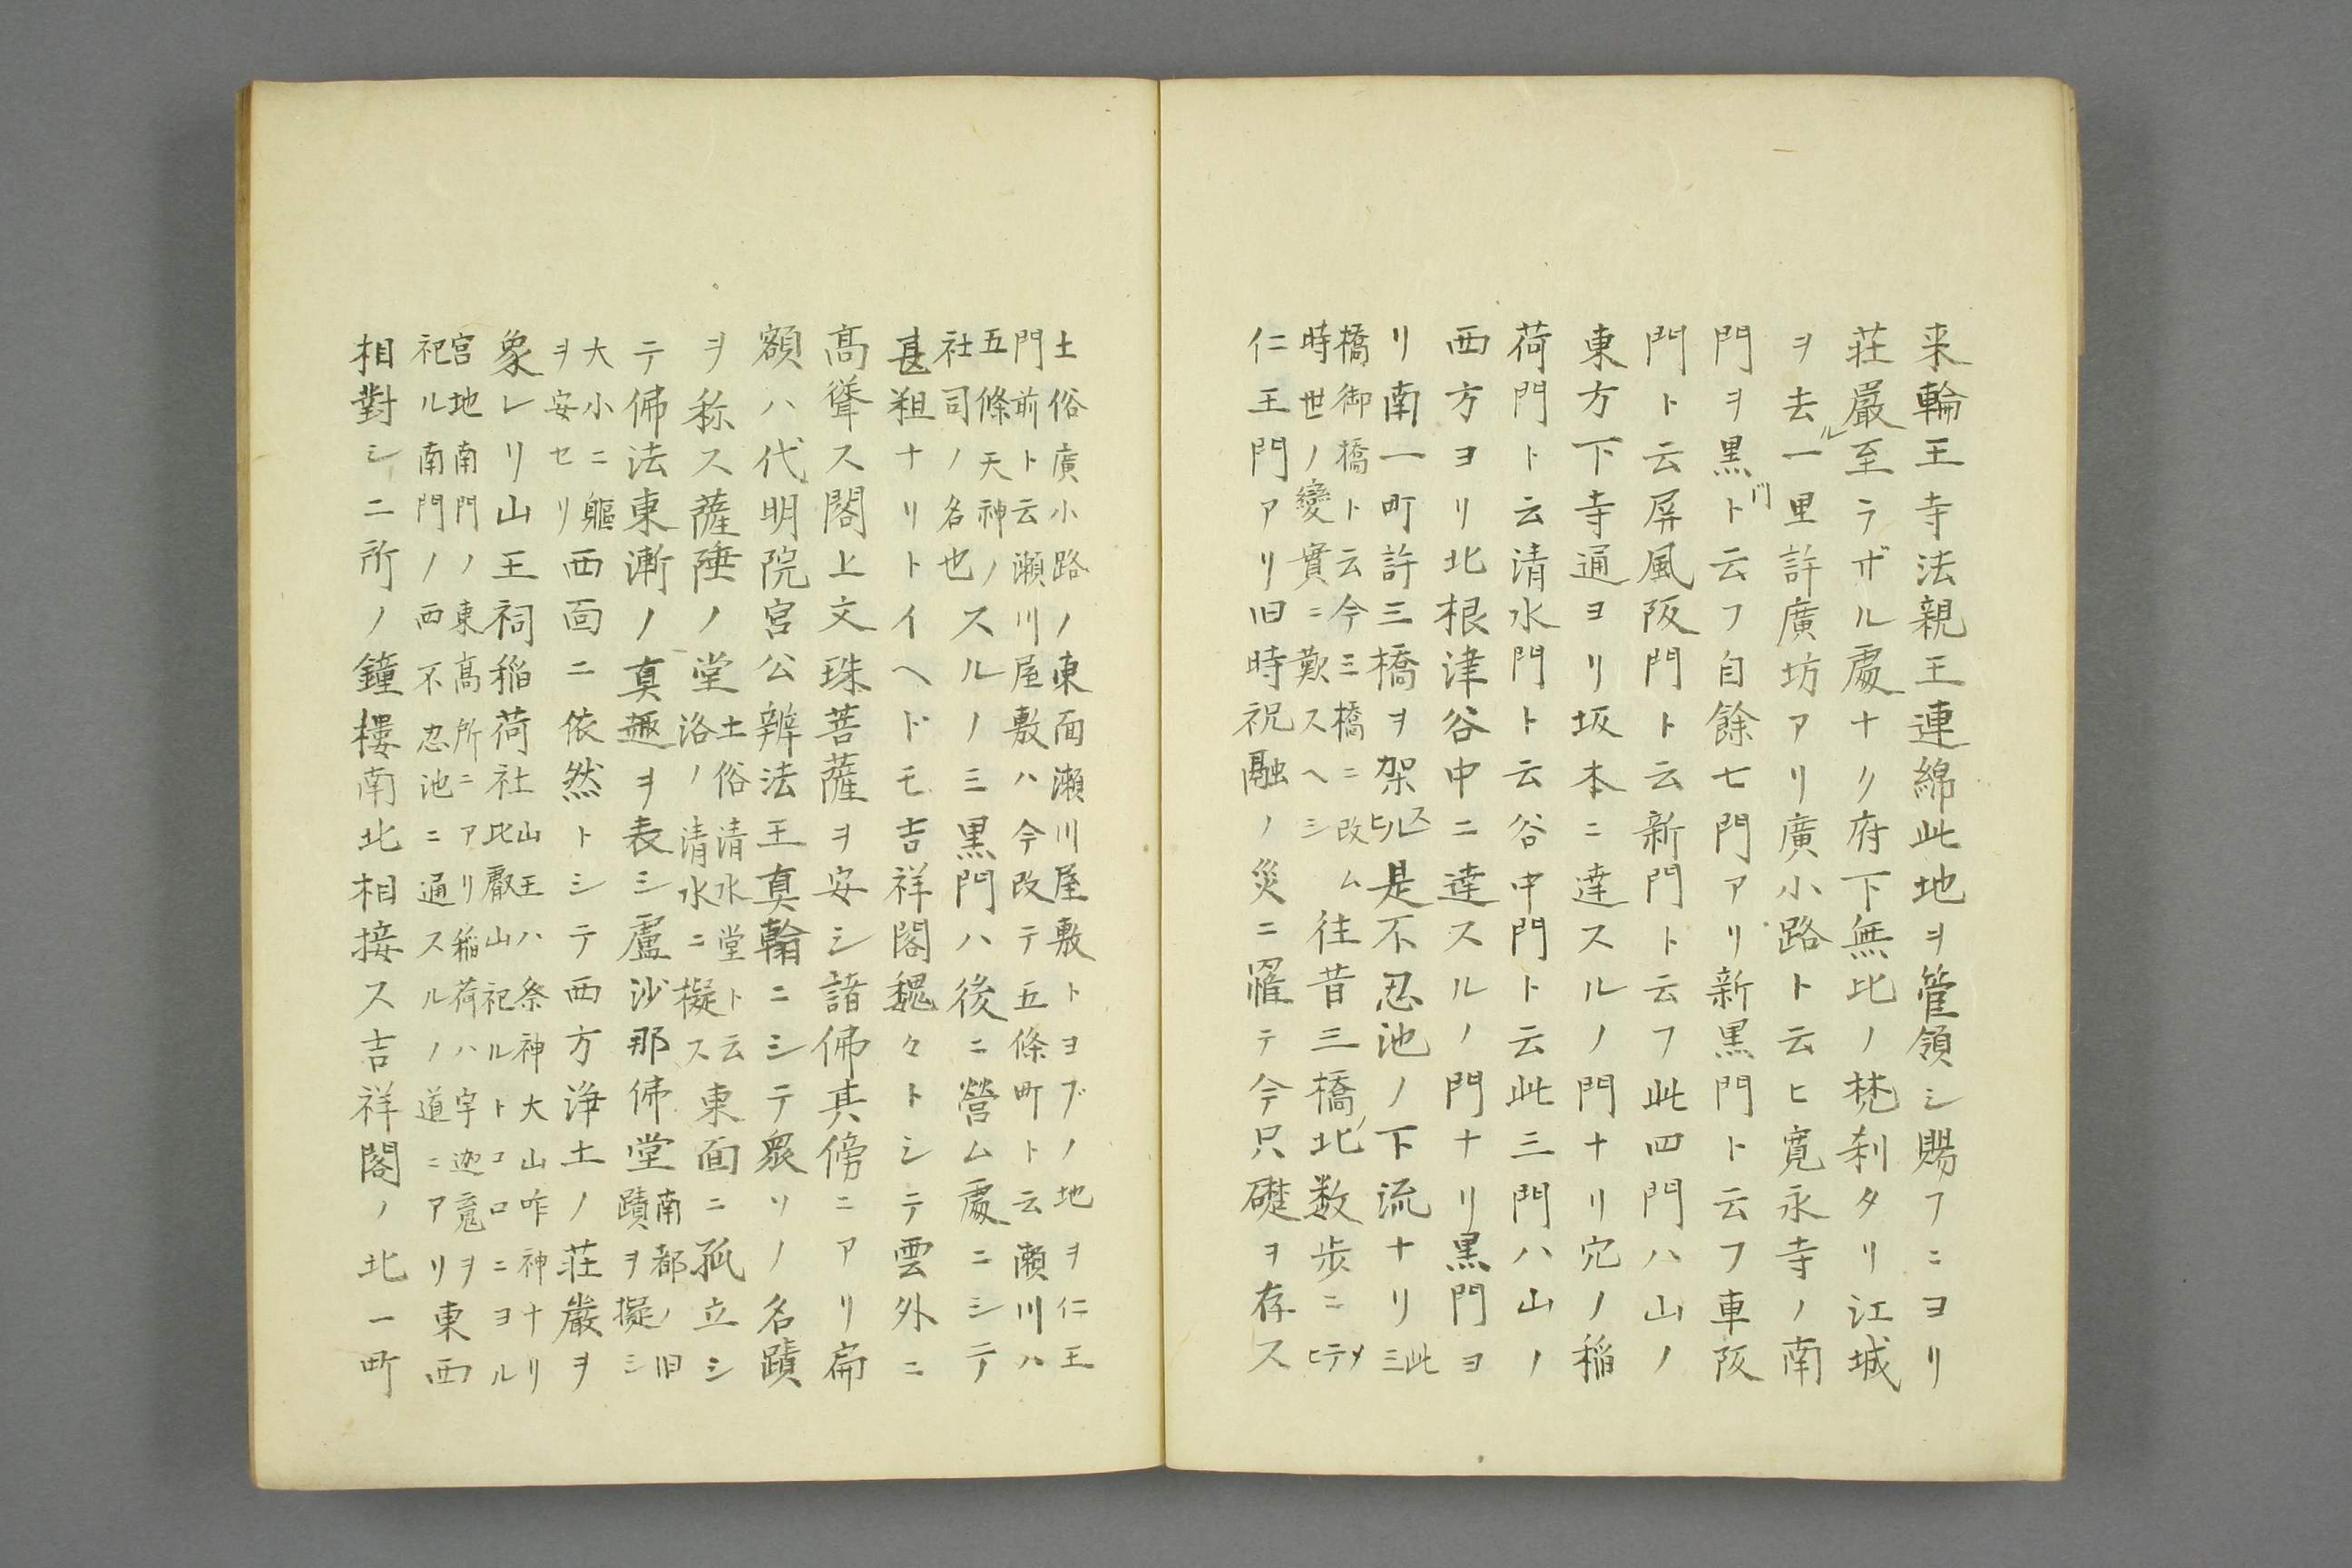 来輪王寺法親王連綿此地ヲ管領シ賜フニヨリ
荘嚴至ラザル處ナク府下無比ノ梵刹タリ江城
ヲ去ル一里許廣坊アリ廣小路ト云ヒ寛永寺ノ南
門ヲ黒門ト云フ自餘七門アリ新黒門ト云フ車阪
門ト云屏風阪門ト云新門ト云フ此四門ハ山ノ
東方下寺通ヨリ坂本ニ達スルノ門ナリ穴ノ稲
荷門ト云清水門ト云谷中門ト云此三門ハ山ノ
西方ヨリ北根津谷中ニ達スルノ門ナリ黒門ヨ
リ南一町許三橋ヲ架スル是不忍池ノ下流ナリ此三
橋御橋ト云今三橋ニ改ム往昔三橋ノ北数歩ニ〆
時世ノ變實ニ歎スヘシ
仁王門アリ旧時祝融ノ災ニ罹テ今只礎ヲ存ス
土俗廣小路ノ東面瀬川屋敷トヨブノ地ヲ仁王
門前ト云瀬川屋敷ハ今改テ五條町ト云瀬川ハ
五條天神ノ
社司ノ名也スルノミ黒門ハ後ニ營ム處ニシテ
甚粗ナリトイヘドモ吉祥閣巍々トシテ雲外ニ
高聳ス閣上文珠菩薩ヲ安シ諸佛其傍ニアリ扁
額ハ代明院宮公辨法王真翰ニシテ衆リノ名蹟
ヲ称ス薩埵ノ堂土俗清水堂ト云洛ノ清水ニ擬ス東面ニ孤立シ
テ佛法東漸ノ真趣ヲ表シ盧沙那佛堂南都ノ旧蹟ヲ擬シ
大小ニ軀ヲ安セリ西面ニ依然トシテ西方浄土ノ荘嚴ヲ
象レリ山王祠稲荷社山王ハ祭神大山咋神ナリ比叡山祀ルトコロニヨル
宮地南門ノ東高所ニアリ稲荷ハ宇迦竟ヲ
祀ル南門ノ西不忍池ニ通スルノ道ニアリ東西
相對シ二所ノ鐘樓南北相接ス吉祥閣ノ北一町